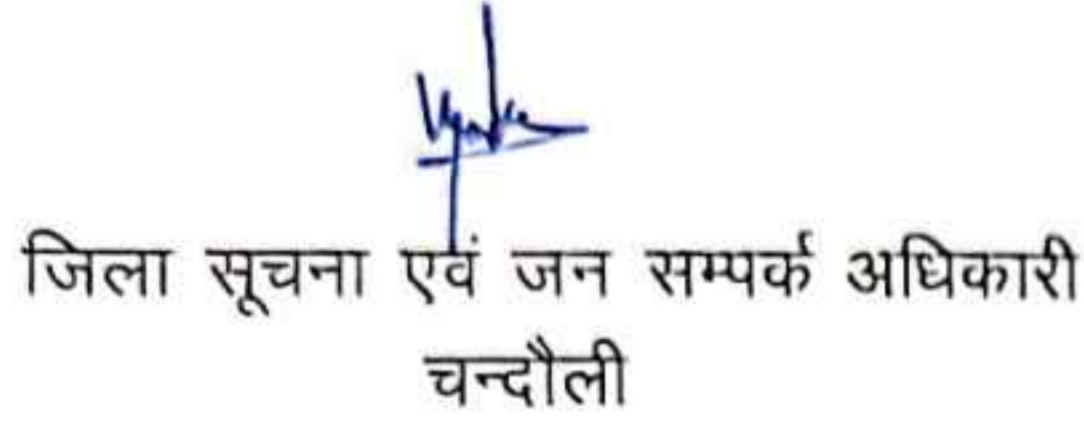 जिला सूचना एवं जन सम्पर्क अधिकारी
चन्दौली